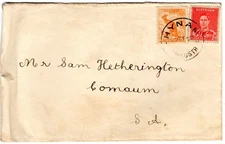 HYNA
AUSTRALIA
Mr Sam Hetherington
Comaum
S.A.